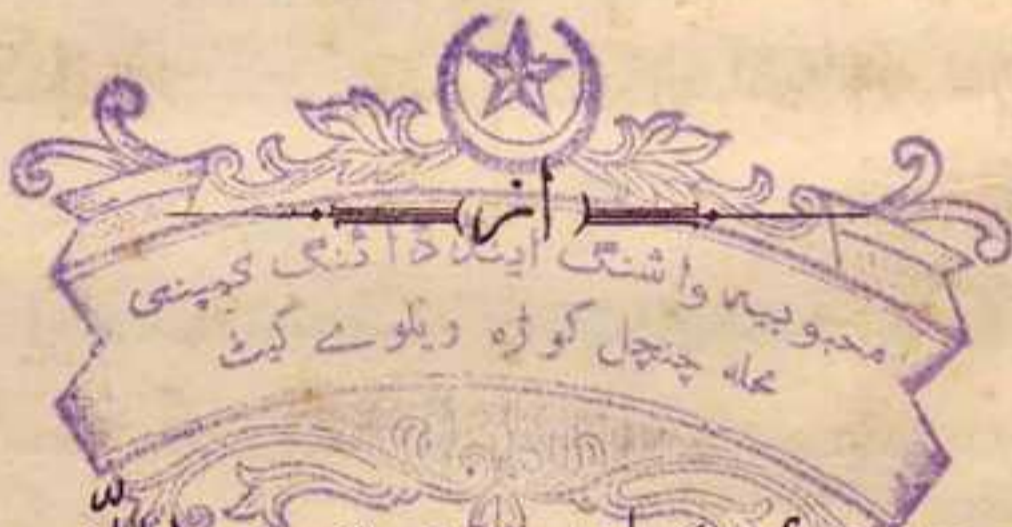 (از)
محبوبیہ واشنگ اینڈ ڈائنگ کمپنی
محلہ چنچل گوڑہ ریلوے گیٹ